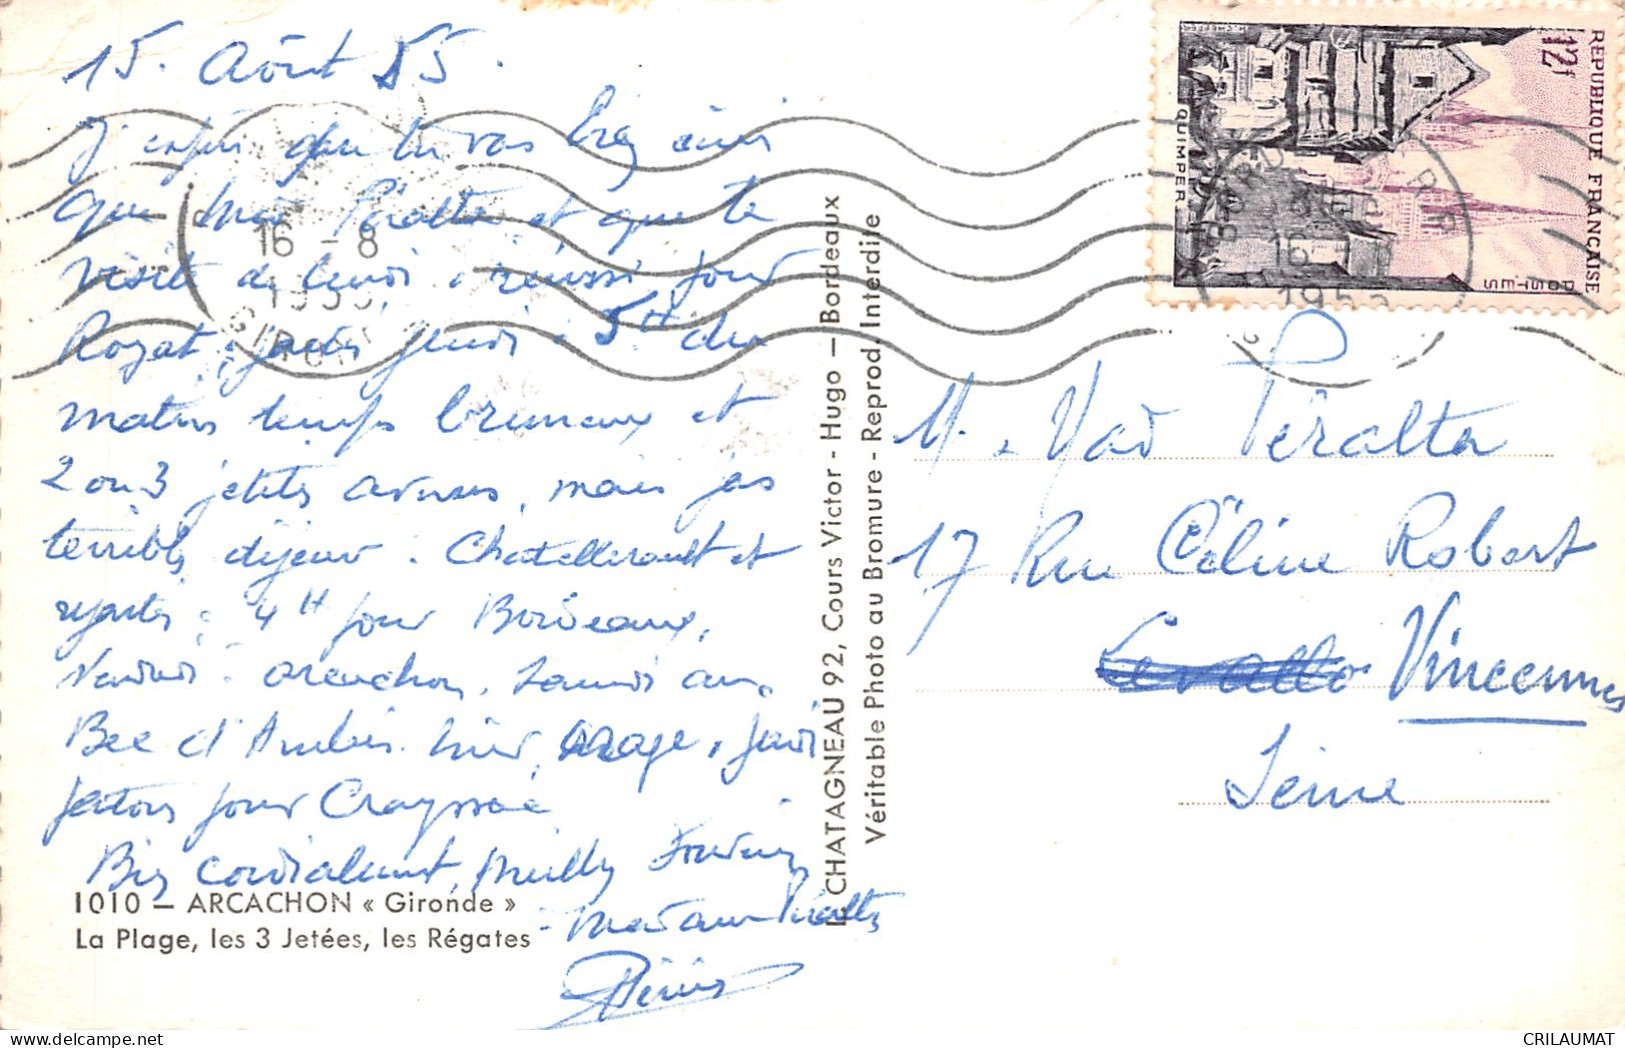 15. Août 55.
J'espère que tu vas bien ainsi
que Mme Péralta et que la
visite de lundi a réussi pour
Royat, partis jeudi. 5H du
matin temps brumeux et
2 ou 3 petites averses, mais pas
terribles déjeuner : Chatellerault et
repartis : 4H pour Bordeaux,
Vendredi - Arcachon, Samedi au
Bec d'Ambès. hier, orage, jeudi
partons pour Crayssac
Bien cordialement, Milly
Madame Péralta
1010 — ARCACHON « Gironde »
La Plage, les 3 Jetées, les Régates
CHATAGNEAU 92, Cours Victor - Hugo — Bordeaux
Véritable Photo au Bromure - Reprod. Interdite
16 - 8
1955
GIRONDE
REPUBLIQUE FRANÇAISE
12F
POSTES
QUIMPER
BORDEAUX
16
1955
M. Mad Péralta
17 Rue Céline Robert
Levallo Vincennes
Seine
CRILAUMAT